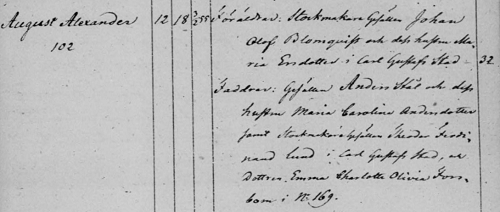 August Alexander 12 18 2/2 55 Föräldrar: Stockmakare Gesällen Johan
102 Olof Blomquist och dess hustru Ma-
ria Ersdotter i Carl Gustafs Stad - 32
Faddrar: Gesällen Anders Stål och dess
hustru Maria Carolina Andersdotter
samt Stockmakare Gesällen Theodor Ferdi-
nand Lund i Carl Gustafs Stad, och
Dottren Emma Charlotte Olivia Fors-
bom i N. 169.